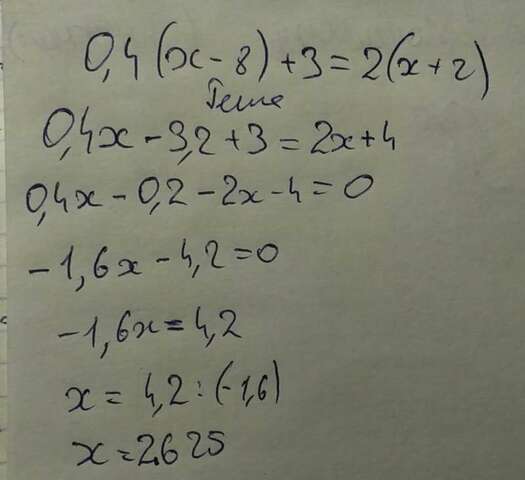 0,4(x-8)+3=2(x+2)
0,4x-3,2+3=2x+4
0,4x-0,2-2x-4=0
-1,6x-4,2=0
-1,6x=4,2
x=4,2:(-1,6)
x=2,625